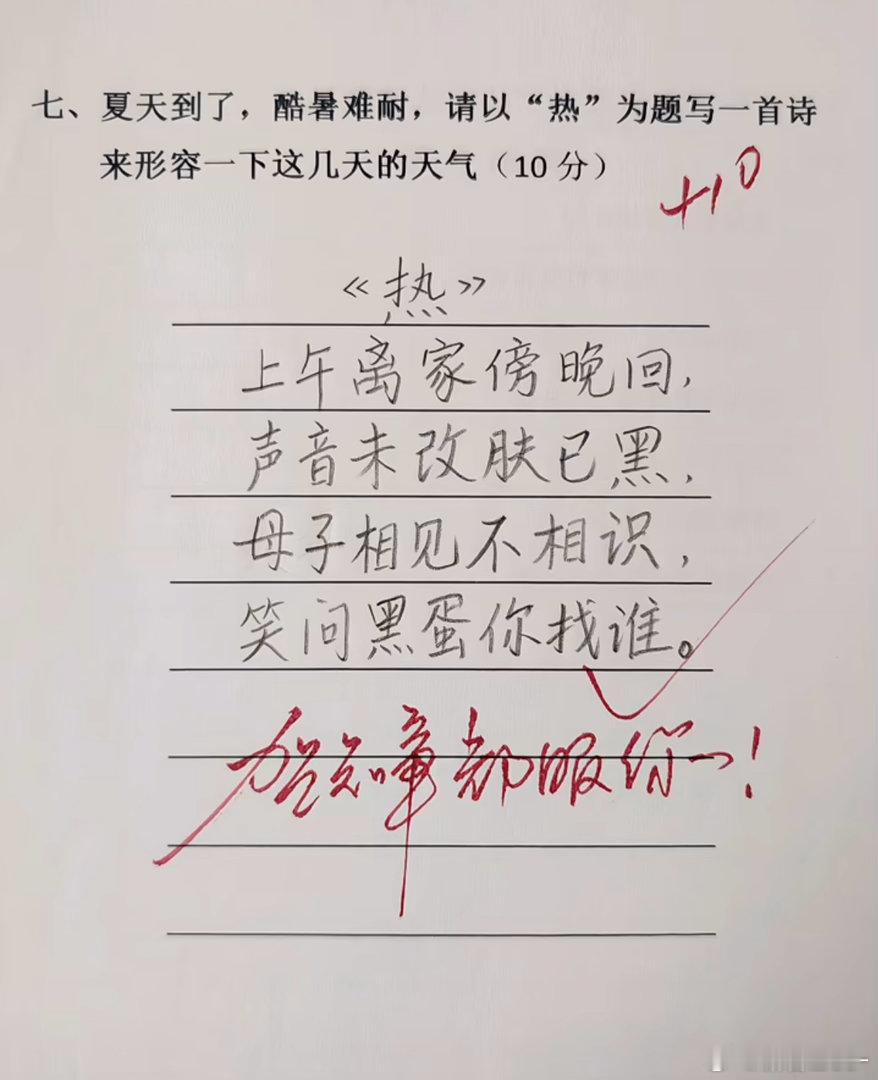 七、夏天到了，酷暑难耐，请以“热”为题写一首诗
来形容一下这几天的天气（10 分）
+10
《热》
上午离家傍晚回，
声音未改肤已黑，
母子相见不相识，
笑问黑蛋你找谁。
贺知章都服你！